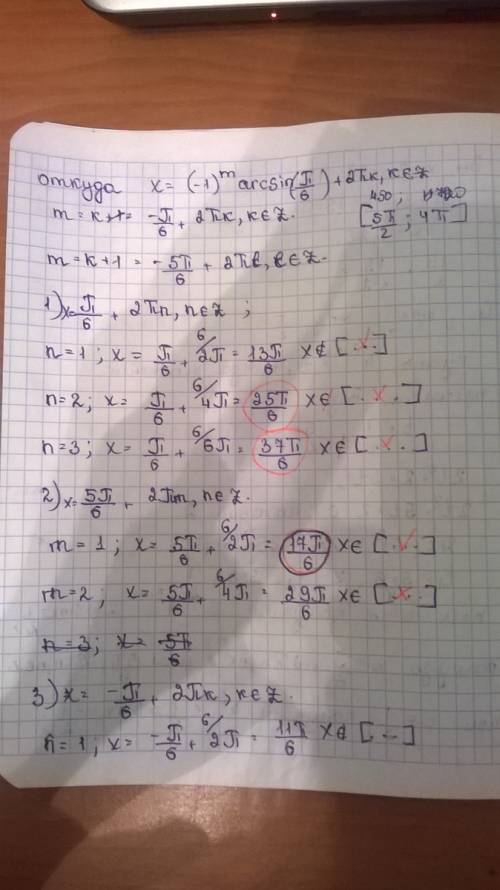 откуда x = (-1)^m arcsin(π/6) + 2πk, k∈Z
m = k = -π/6 + 2πk, k∈Z. [5π/2; 4π]
450;
m = k+1 = -5π/6 + 2πℓ, ℓ∈Z.
1) x = π/6 + 2πn, n∈Z;
n=1; x = π/6 + 6/2π = 13π/6 x∉[..]
n=2; x = π/6 + 6/4π = 25π/6 x∈[. x .]
n=3; x = π/6 + 6/6π = 37π/6 x∈[. x .]
2) x = 5π/6 + 2πm, n∈Z.
m=1; x = 5π/6 + 6/2π = 17π/6 x∈[. ✓ .]
m=2; x = 5π/6 + 6/4π = 29π/6 x∈[. x .]
n=3; x = 5π/6
3) x = -π/6 + 2πk, k∈Z.
n=1; x = -π/6 + 6/2π = 11π/6 x∉[...]